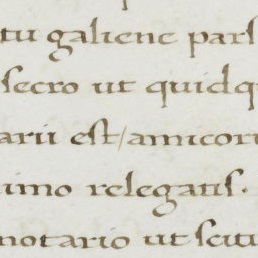 tu galiene pars
secro ut quidq
arii est/amicor
imo relegatis.
notario ut scitu